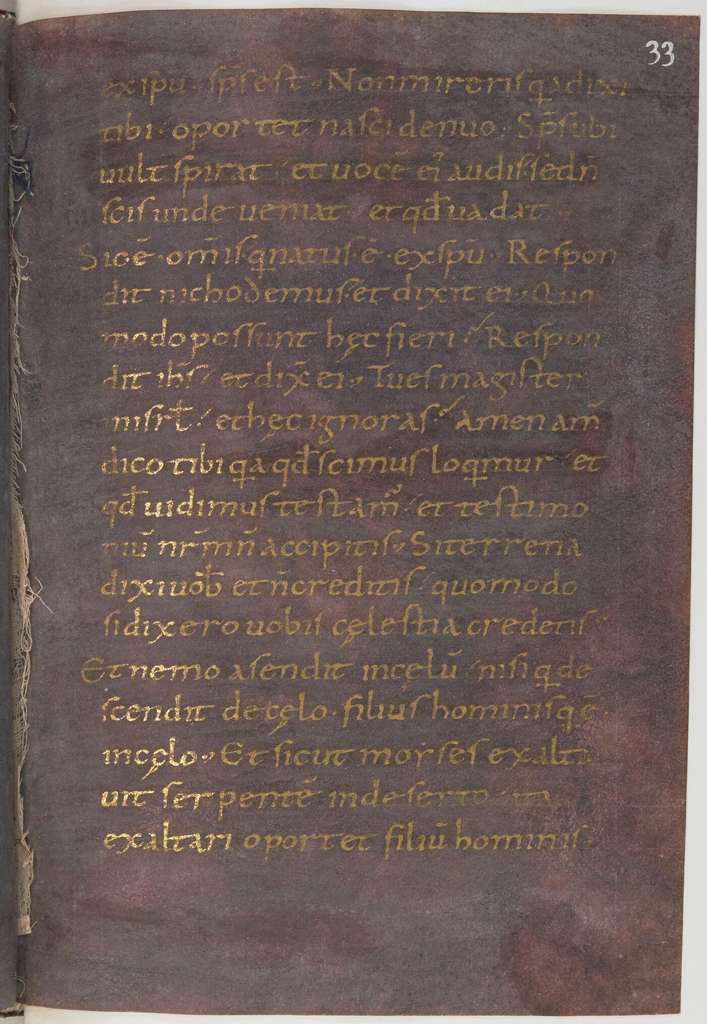 33
exspu · sp̄s est · Non mireris qa dixi
tibi · oportet nasci denuo · Sp̄s ubi
uult spirat · et uocē ei' audis · sed n̄
scis unde ueniat · et qđ uadat ·
Sic ē · om̄is q natus · ē · ex spū · Respon
dit nichodemus · et dixit ei · Quo
modo possunt hęc fieri · Respon
dit ih̄s · et dix̄ ei · Tu es magister
in isrł · et hęc ignoras · Amen am̄
dico tibi qa qđ scimus loqimur · et
qđ uidimus testam̄ · et testimo
niū nr̄m n̄ accipitis · Si terrena
dixi uob̄ et n̄ creditis · quomodo
si dixero uobis cęlestia credetis
Et nemo asendit in cęlū · nisi q de
scendit de cęlo · filius hominis q ē
in cęlo · Et sicut moyses exalta
uit serpentē in deserto · ita
exaltari oportet filiū hominis